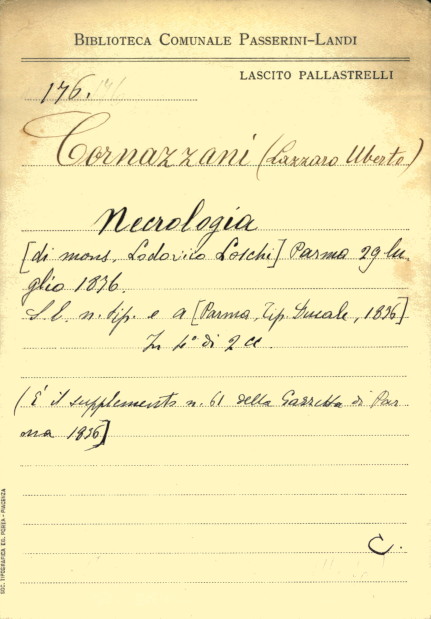 BIBLIOTECA COMUNALE PASSERINI-LANDI
LASCITO PALLASTRELLI
176.
Cornazzani (Lazzaro Uberto)
Necrologia
[di mons. Lodovico Loschi] Parma 29 lu
glio 1836.
S. l. n. tip. e a [Parma, Tip. Ducale, 1836]
In 4° di 2 cc.
(È il supplemento n. 61 della Gazzetta di Par
ma 1836]
C.
SOC. TIPOGRAFICA ED. PORTA - PIACENZA